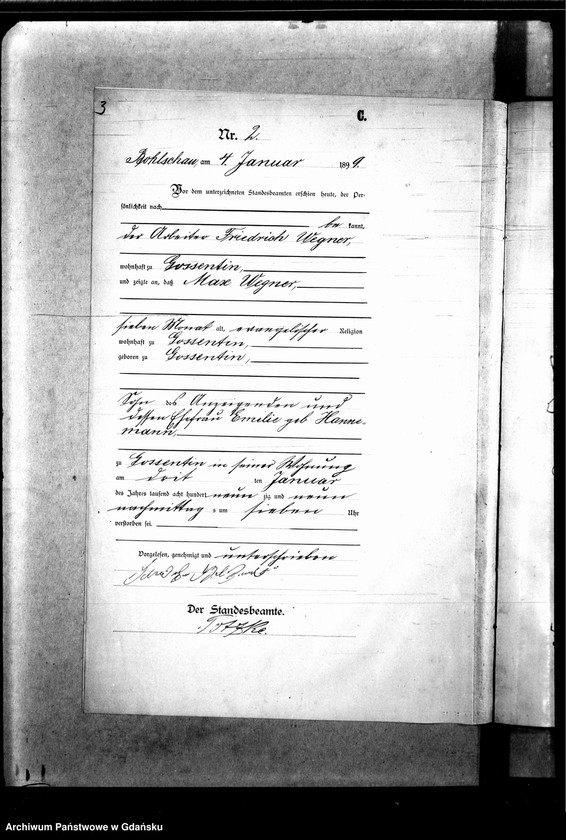 3
C.
Nr. 2.
Bohlschau, am 4. Januar 1899.
Vor dem unterzeichneten Standesbeamten erschien heute, der Per-
sönlichkeit nach
be kannt,
der Arbeiter Friedrich Wegner,
wohnhaft zu Gossentin,
und zeigte an, daß Max Wegner,
sieben Monat alt, evangelischer Religion
wohnhaft zu Gossentin,
geboren zu Gossentin,
Sohn des Anzeigenden und
dessen Ehefrau Emilie geb. Hanne-
mann,
zu Gossentin in seiner Wohnung
am ten Januar
des Jahres tausend acht hundert neun zig und neun
nachmittag s um sieben Uhr
verstorben sei.
Vorgelesen, genehmigt und unterschrieben
Der Standesbeamte.
Archiwum Państwowe w Gdańsku